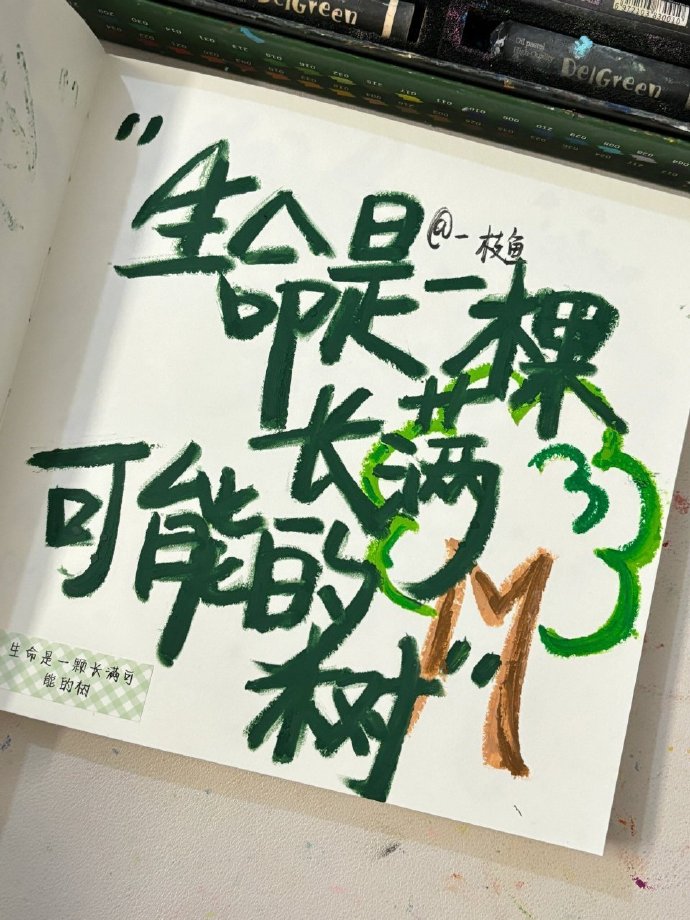 DelGreen
Oil pastel
DelGreen
"生命是一棵
@一枝鱼
长满
可能的
树"
生命是一颗长满可
能的树